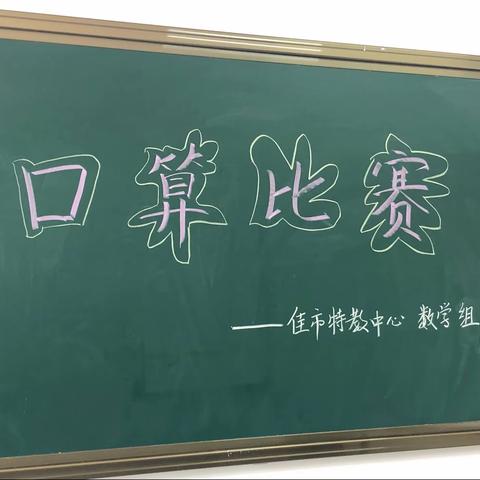 口算比赛
——佳市特教中心 数学组